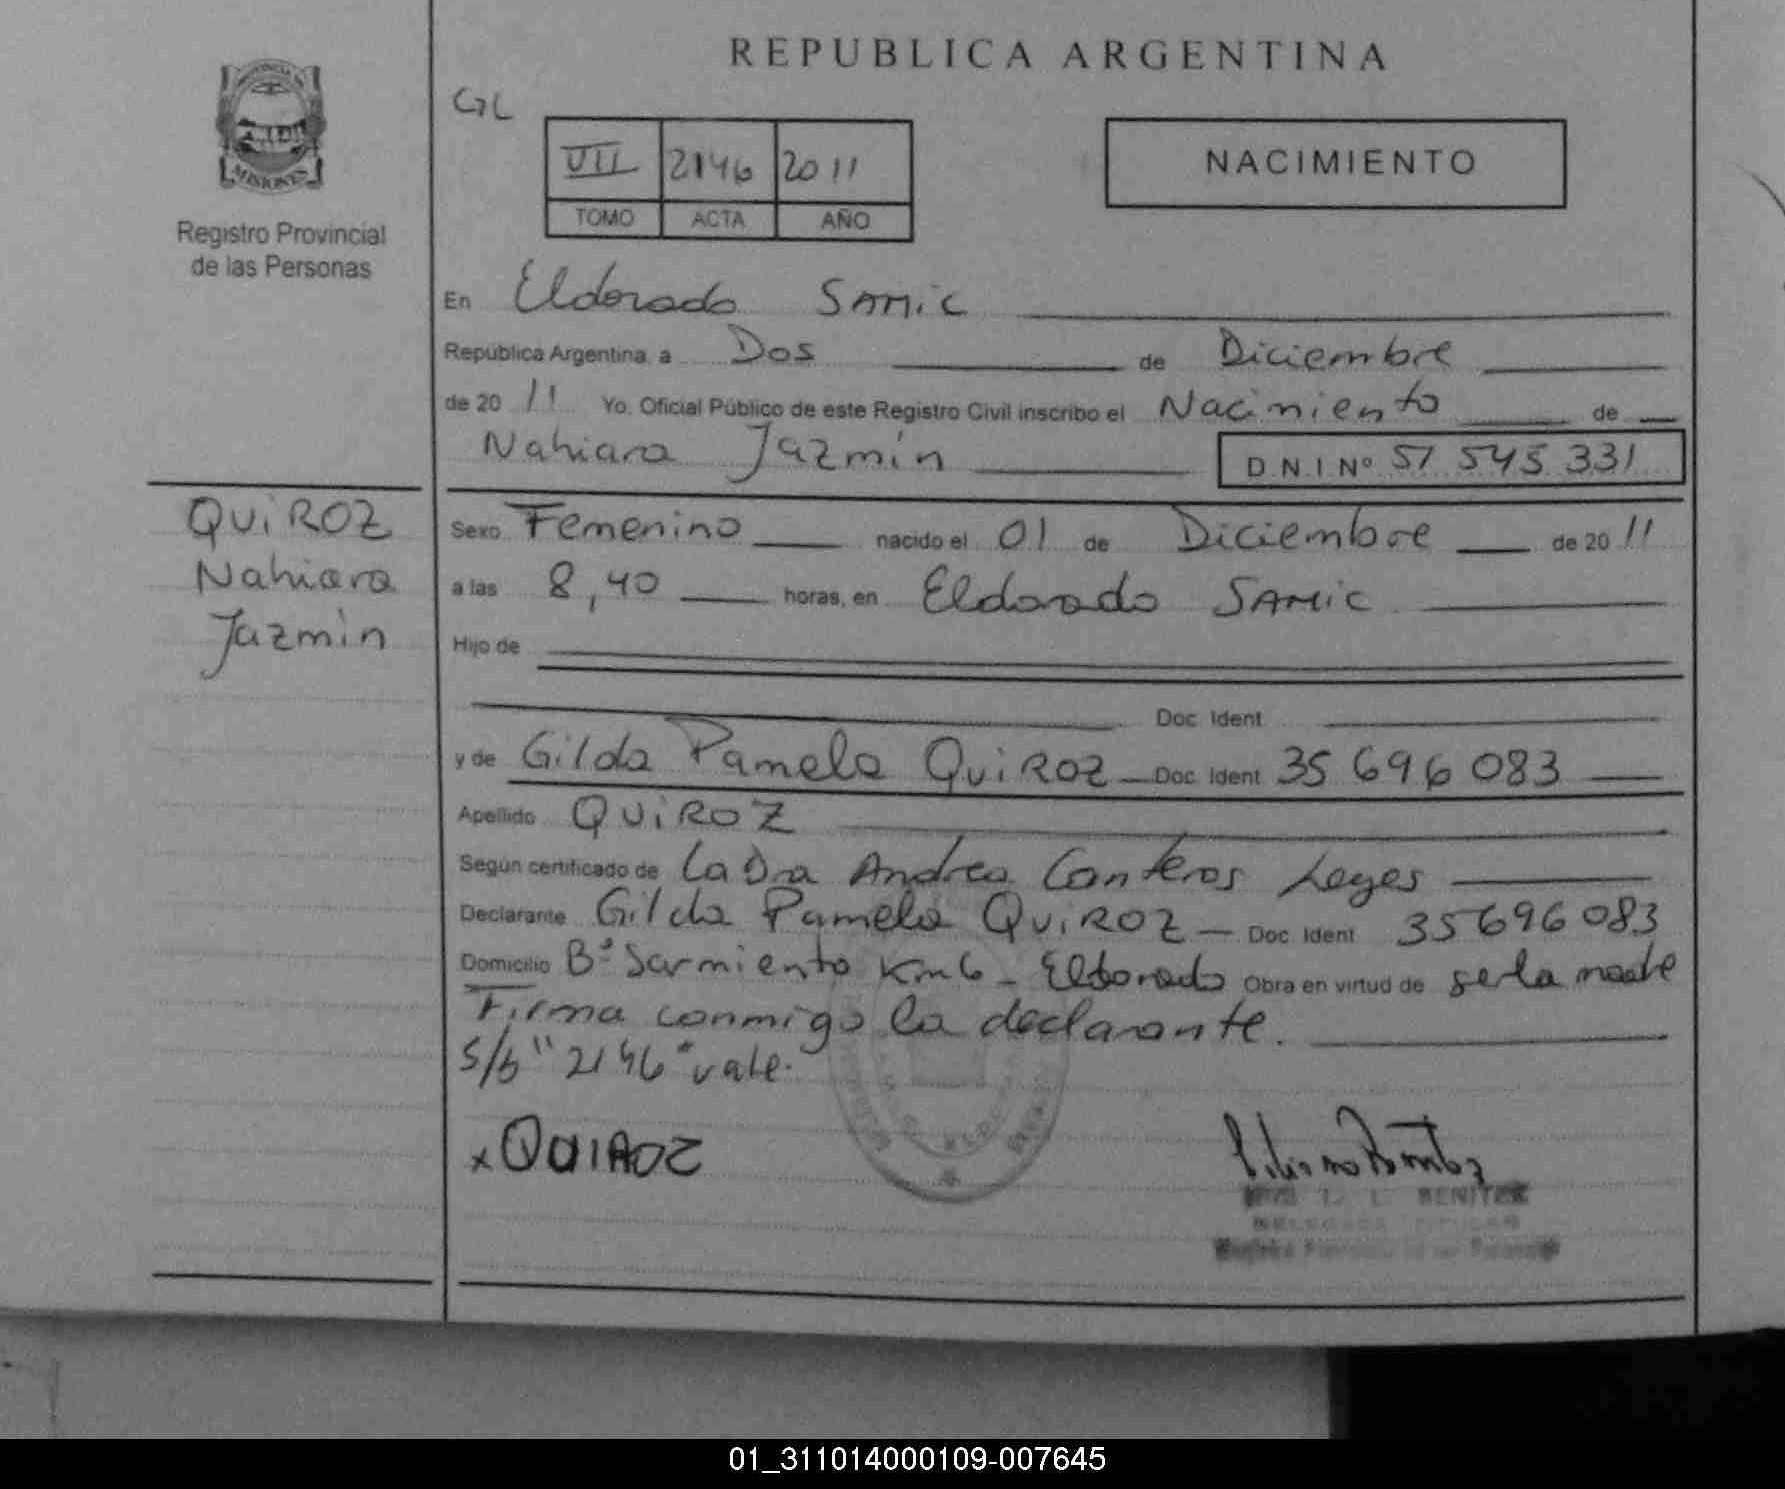 REPUBLICA ARGENTINA
PROVINCIA DE
MISIONES
Registro Provincial
de las Personas
GL
VII 2146 2011
TOMO ACTA AÑO
NACIMIENTO
En Eldorado SAMIC
República Argentina, a Dos de Diciembre
de 20 11 Yo, Oficial Público de este Registro Civil inscribo el Nacimiento de
Nahiara Jazmín D.N.I Nº 51 545 331
QUIROZ
Nahiara
Jazmín
Sexo Femenino nacido el 01 de Diciembre de 20 11
a las 8,40 horas, en Eldorado SAMIC
Hijo de
Doc. Ident.
y de Gilda Pamela QUIROZ Doc. Ident. 35 696 083
Apellido QUIROZ
Según certificado de La Dra Andrea Canteros Leyes
Declarante Gilda Pamela QUIROZ Doc. Ident. 35696083
Domicilio Bº Sarmiento Km 6 - Eldorado Obra en virtud de ser la madre
Firma conmigo la declarante.
S/b "2146" vale.
x QUIROZ
BENITEZ
01_311014000109-007645